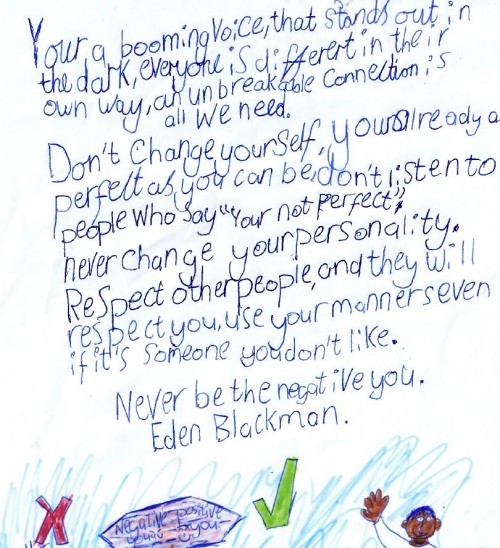 Your a booming voice, that stands out in
the dark, everyone is different in their
own way, an unbreakable connection is
all we need.
Don't change yourself, your already a
perfect as you can be, don't listen to
people who say "Your not perfect",
never change your personality.
Respect other people, and they will
respect you, use your manners even
if it's someone you don't like.
Never be the negative you.
Eden Blackman.
Negative positive
you